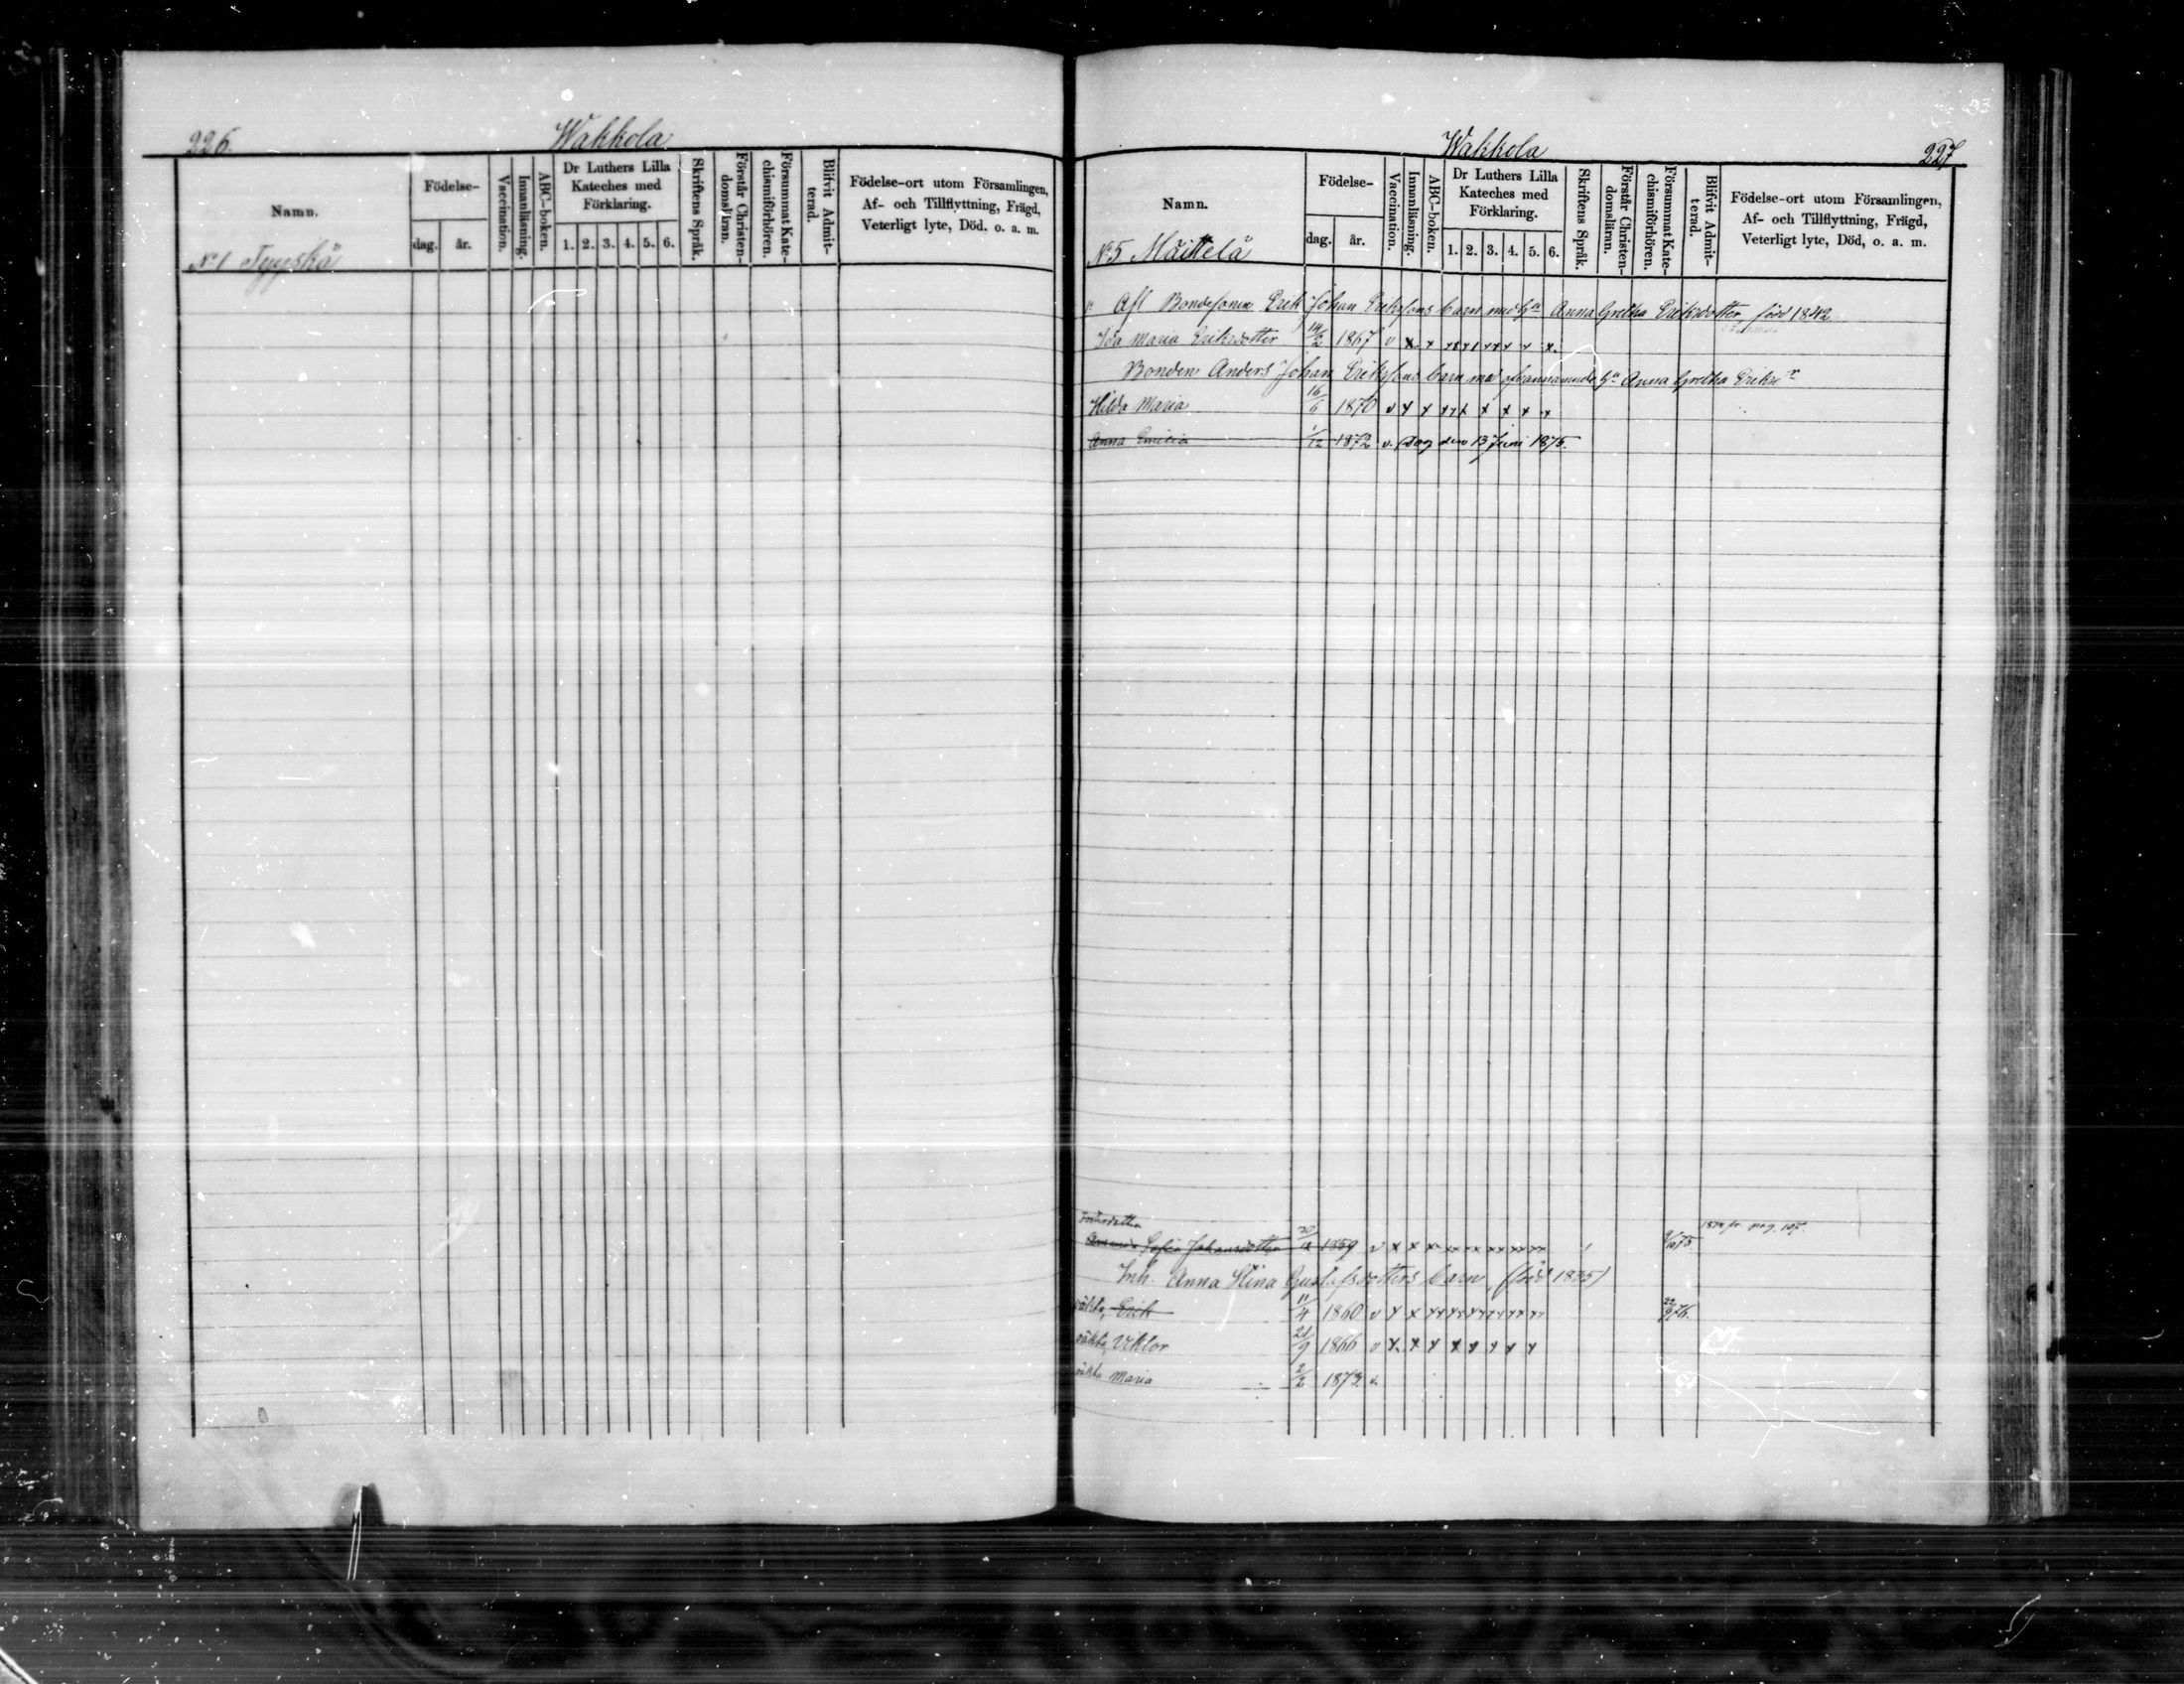 226.
Wakkola
Namn.
Födelse-
dag.
år.
Vaccination.
Innanläsning.
ABC-boken.
Dr Luthers Lilla
Kateches med
Förklaring.
1. 2. 3. 4. 5. 6.
Skriftens Språk.
Förstår Christen-
domsläran.
Försummat Kate-
chismiförhören.
Blifvit Admit-
terad.
Födelse-ort utom Församlingen,
Af- och Tillflyttning, Frägd,
Veterligt lyte, Död. o. a. m.
No 1 Tyyskä
Wakkola
227
Namn.
Födelse-
dag.
år.
Vaccination.
Innanläsning.
ABC-boken.
Dr Luthers Lilla
Kateches med
Förklaring.
1. 2. 3. 4. 5. 6.
Skriftens Språk.
Förstår Christen-
domsläran.
Försummat Kate-
chismiförhören.
Blifvit Admit-
terad.
Födelse-ort utom Församlingen,
Af- och Tillflyttning, Frägd,
Veterligt lyte, Död, o. a. m.
No 5 Mäittelä
Afl Bondesonen Erik Johan Eriksons barn med Hu Anna Gretha Eriksdotter, född 1842
Ida Maria Eriksdotter 14/2 1867 v x x xx x x xx x x x.
Bonden Anders Johan Eriksons barn med Hu Anna Gretha Eriksdr
Hilda Maria 16/6 1870 v x x x x x x x x x
Anna Emilia 1/12 1872 v. Dog den 13 Juni 1875.
Sofia Johansdotter 20/12 1859 v x x x xx xx xx xx xx 1874 fr. pag. 197
Inh. Anna Stina Gustafsdotters barn (född 1835)
oäkta, Erik 11/4 1860 v x x xx xx xx xx xx xx 22/9 76.
oäkta, Viktor 21/9 1866 v x x x x x x x x
oäkta Maria 2/2 1873. v.